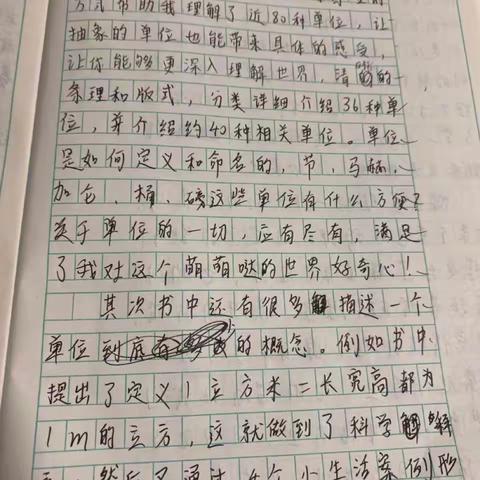 方式帮助我理解了近80种单位，让
抽象的单位也能带来具体的感受，
让你能够更深入理解世界，晴的一
条理和版式，分类详细介绍36种单
位，并介绍约40种相关单位。单位
是如何定义和命名的，节，马赫、
加仑、桶、磅这些单位有什么方便？
关于单位的一切，应有尽有，满足
了我对这个萌萌哒的世界好奇心！
其次书中还有很多描述一个
单位到底的概念。例如书中
提出了定义1立方米=长宽高都为
1m的立方，这就做到了科学解
然后又通过4个小生活案例形